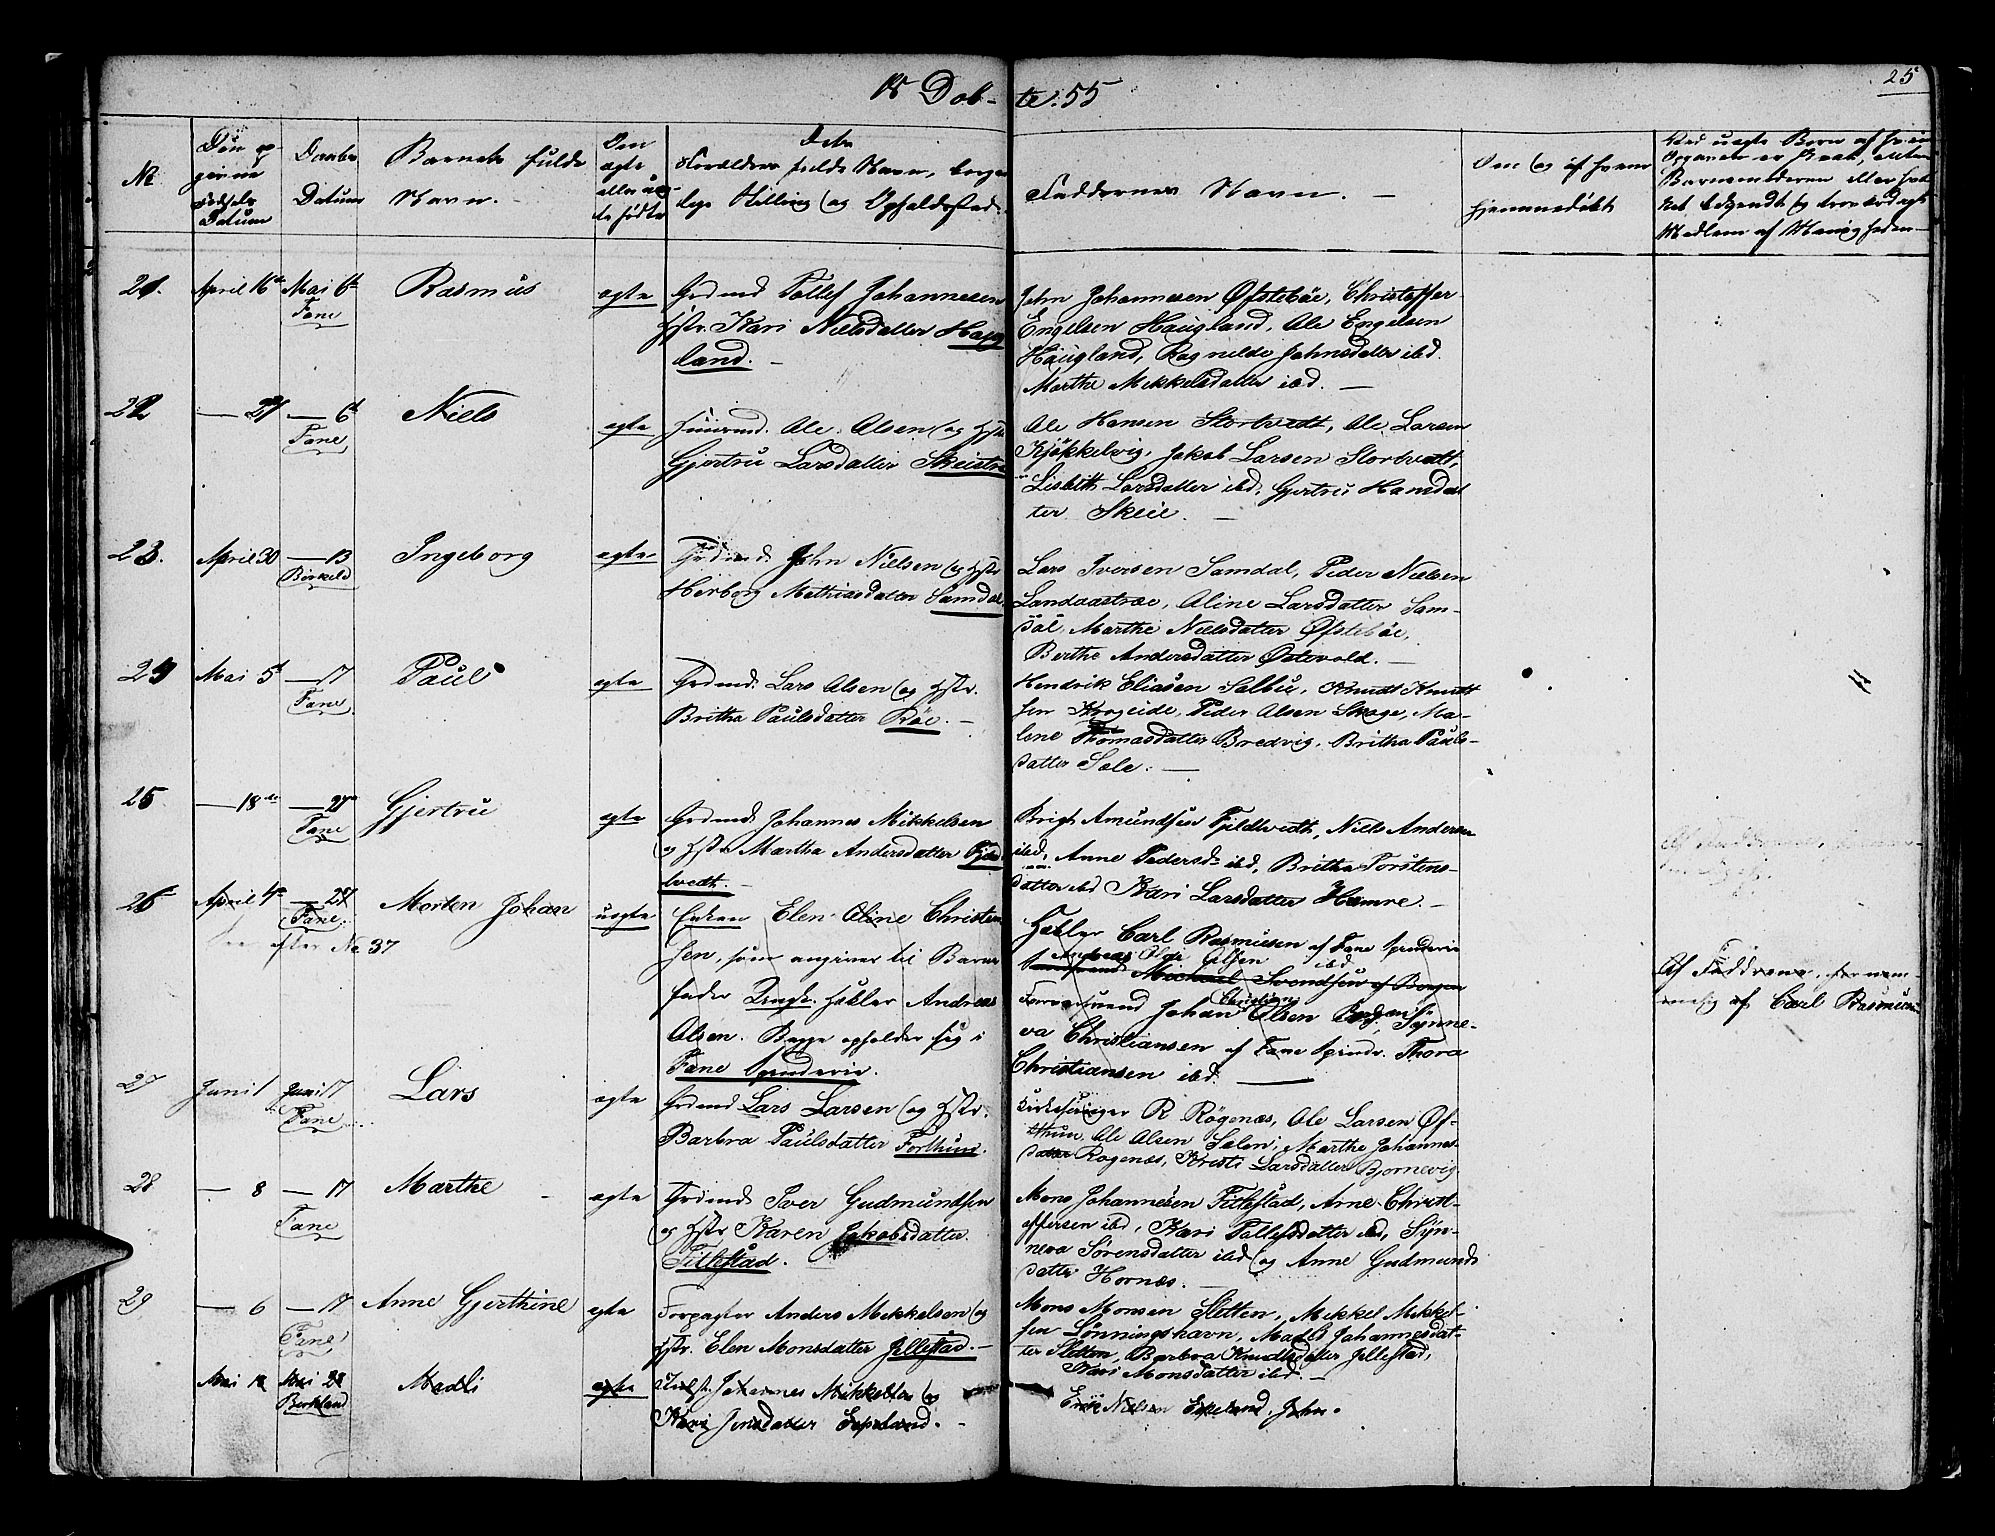 25
18 Døb- te. 55
№
Den op-
givne
Fødsels
Datum
Daabs
Datum
Barnets fulde
Navn. -
Den
ægte
eller uæg-
te fødte
Forældres fulde Navn, borger-
lige Stilling og Opholdssted.
Faddernes Navn. -
Om og af hvem
hjemmedøbt
21. April 16de Mai 6te Rasmus ægte Grdmd Tollef Johannesen
Fane
Hstr. Kari Nielsdatter Haug-
land. -
John Johannesen Øfstebøe, Christoffer
Engelsen Haugland, Ole Engelsen
Haugland, Ragnilde Johnsdatter ibd.
Marthe Mikkelsdatter ibd. -
22 - 27 - 6te Niels
Fane
ægte Huusmd. Ole Olsen og Hstr
Gjertru Larsdatter Skeistræ
Ole Hansen Stortvedt, Ole Larsen
Kjøkkelvig, Jakob Larsen Stortvedt,
Lisbeth Larsdatter ibd, Gjertru Hansdat
ter Skeie. -
23. April 30 - 13 Ingeborg ægte Grdmd. John Nielsen og Hstr
Birkeld
Herborg Mathiasdatter Samdal.
Lars Iversen Samdal, Peder Nielsen
Landaastræe, Oline Larsdatter Sam-
dal, Marthe Nielsdatter Øfstebøe,
Berthe Andersdatter Østevold. -
24 Mai 5te - 17 Paul ægte Grdmd. Lars Olsen og Hstr.
Fane
Britha Paulsdatter Røe. -
Hendrik Eliasen Salbu, Knudt Knudt
sen Krogeide, Peder Olsen Skage, Ma-
lene Thomasdatter Bredvig, Britha Pauls-
datter Søle. -
25 - 18de - 27de Gjertru
Fane
ægte Grdmd. Johannes Mikkelsen
og Hstr Martha Andersdatter Fjeld-
tvedt. -
Amundsen Fjeldtvedt, Niels Andersen
ibd, Anne Pedersdr ibd, Britha Torstens-
datter ibd Kari Larsdatter Hamre. -
26 April 4de - 27 Morten Johan
Fane
efter No 37
uægte Enken Elen Oline Christen
sen, som angiver til Barne
fader Ungk. Hekler Andreas
Olsen. Begge opholder sig i
Fane Spinderie.
Hekler Carl Rasmusen af Fane Spinderie
Andreas Olai Olsen ibd
Michael Svendsen af Bergen
Christian
Farversvend Johan Olsen Bergen, Synne-
va Christiansen af Fane Spindr. Thora
Christiansen ibd. -
Af Faddrene, fornem
melig af Carl Rasmusen
27 Juni 1 Juni 17 Lars
Fane
ægte Grdmd Lars Larsen og Hstr.
Barbra Paulsdatter Forthun.
Kirkesanger R. Røgenæs, Ole Larsen Øf-
sthun, Ole Olsen Sælen, Marthe Johannes-
datter Rogenæs, Kristi Larsdatter Bjornevig
28 - 8 - 17 Marthe - ægte Grdmd Iver Gudmundsen
Fane
og Hstr Karen Jakobsdatter
Titlestad.
Mons Johannesen Titlestad, Arne Christ-
offersen ibd, Kari Tollefsdatter ibd, Syn-
neva Sørensdatter ibd og Anne Gudmunds
datter Hornæs. -
29 - 6 - 17 Anne Gjerthine ægte Forpagter Anders Mikkelsen og
Fane
Hstr. Elen Monsdatter Jellestad. -
Mons Monsen Sletten, Mikkel Mikkel-
sen Lønningshavn, Madli Johannesdat-
ter Sletten, Barbra Knudtsdatter Jellestad,
Kari Monsdatter ibd. -
Mai 12 Mai 28 Madli ægte Johannes Mikkelsen og
Birkland
Kari Jensdatter Espeland. -
Erik Nielsen Espeland, John.